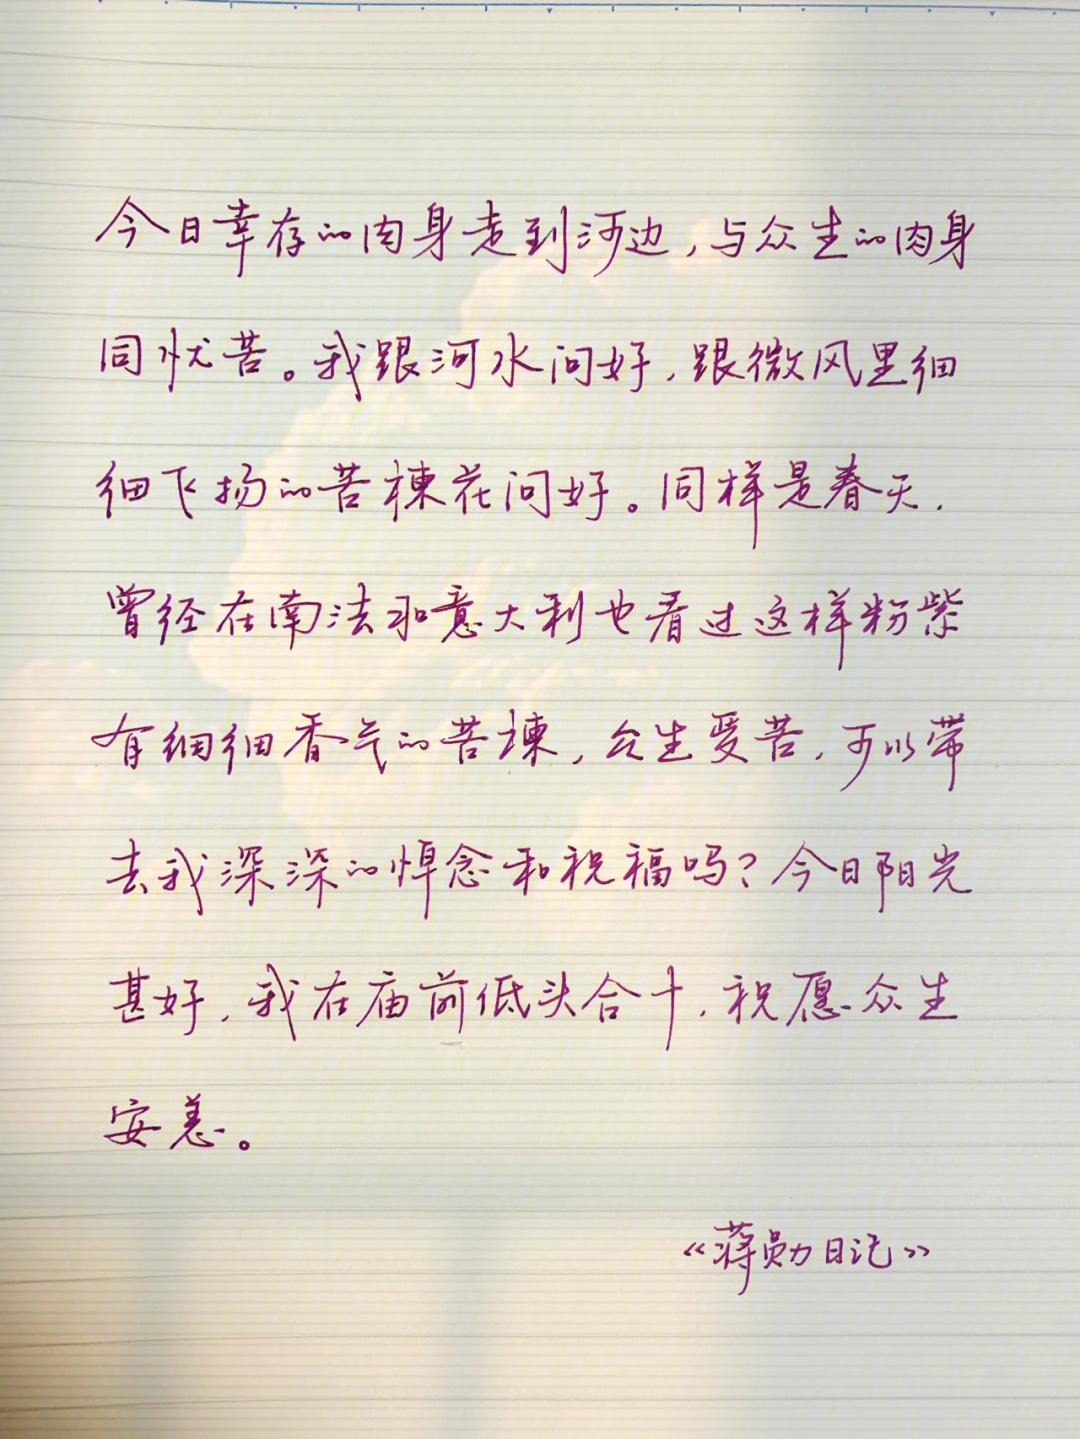 今日幸存的肉身走到河边,与众生的肉身
同忧苦。我跟河水问好,跟微风里细
细飞扬的苦楝花问好。同样是春天,
曾经在南法和意大利也看过这样粉紫
有细细香气的苦楝,众生受苦,可以带
去我深深的悼念和祝福吗?今日阳光
甚好,我在庙前低头合十,祝愿众生
安恙。
《蒋勋日记》